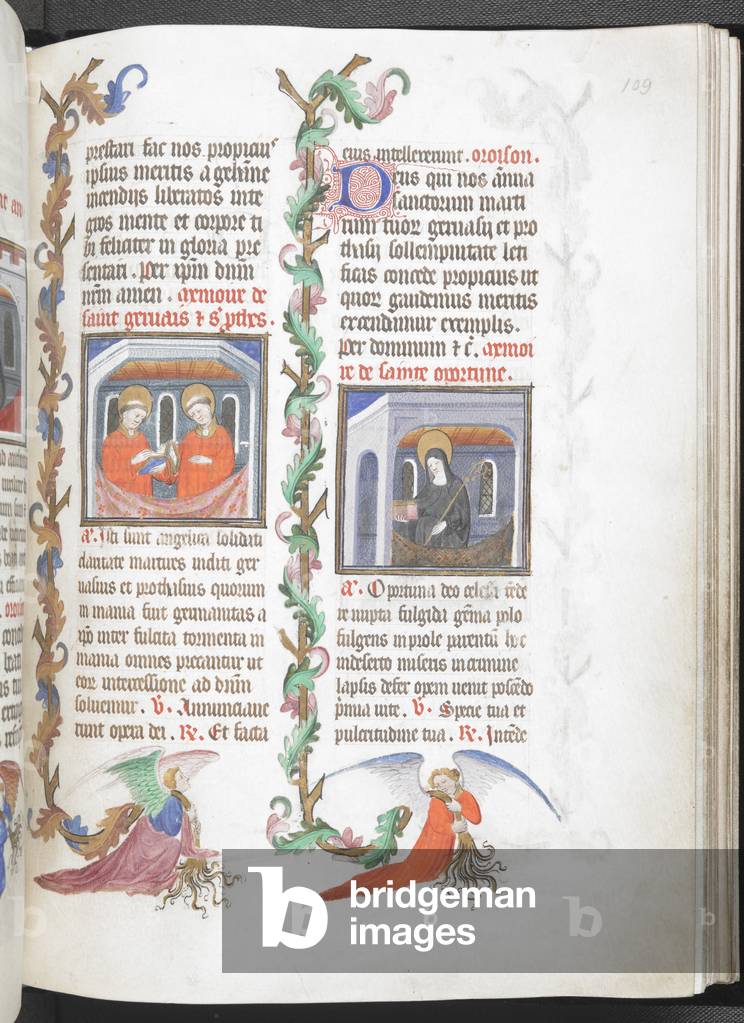 109
prestari fac nos propicius
ipsius meritis a gehenne
incendiis liberatos inte
gros mente et corpore ti
bi feliciter in gloria pre
sentari. Per xpm dnm
nrm amen. memoire de
saint geruais & s' pthes.
a. Isti sunt angelica solidati
claritate martires incliti ger
uasius et prothasius quorum
in mania fuit germanitas a
xpo inter fulcita tormenta in
mania omnes precantur ut
eor intercessione ad dnm
soluemur. V. Annunciaue
runt opera dei. Re. Et facta
eius intellexerunt. oroison.
Deus qui nos anna
sanctorum marti
rum tuor geruasii et pro
thasii sollempnitate leti
ficas concede propicius ut
quor gaudemus meritis
accendamur exemplis.
Per dominum & c. memoi
re de sainte oportune.
a. Oportuna deo celesti fede
re nupta fulgida gema polo
fulgens in prole parentu hec
indeserto miseris in crimine
lapsis defer opem uenit poscedo
pmia uite. V. Specie tua et
pulcritudine tua. Re. Intede
b
bridgeman
images